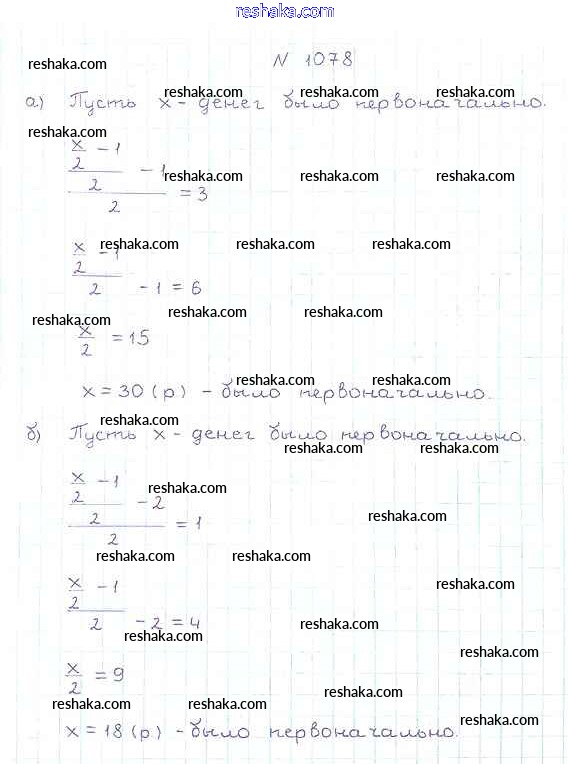 reshaka.com
N 1078
reshaka.com
reshaka.com reshaka.com reshaka.com
а) Пусть x - денег было первоначально.
reshaka.com
x/2 - 1
/2 - 1
/2 = 3
reshaka.com reshaka.com reshaka.com
reshaka.com reshaka.com reshaka.com
x/2 - 1
/2 - 1 = 6
reshaka.com reshaka.com
reshaka.com
x/2 = 15
reshaka.com reshaka.com
x = 30 (р) - было первоначально.
reshaka.com
б) Пусть x - денег было первоначально.
reshaka.com reshaka.com
x/2 - 1
/2 - 2
/2 = 1
reshaka.com
reshaka.com
reshaka.com reshaka.com
x/2 - 1
/2 - 2 = 4
reshaka.com
reshaka.com
reshaka.com
reshaka.com
x/2 = 9
reshaka.com
reshaka.com reshaka.com
reshaka.com
x = 18 (р) - было первоначально.